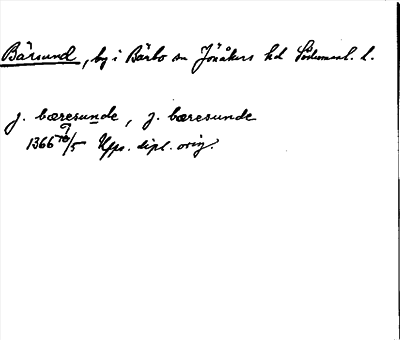 Bärsund, by i Bärbo sn Jönåkers hd Södermanl. l.
j. bæresunde, j. bæresunde
1366 10/5 Upps. dipl. orig.